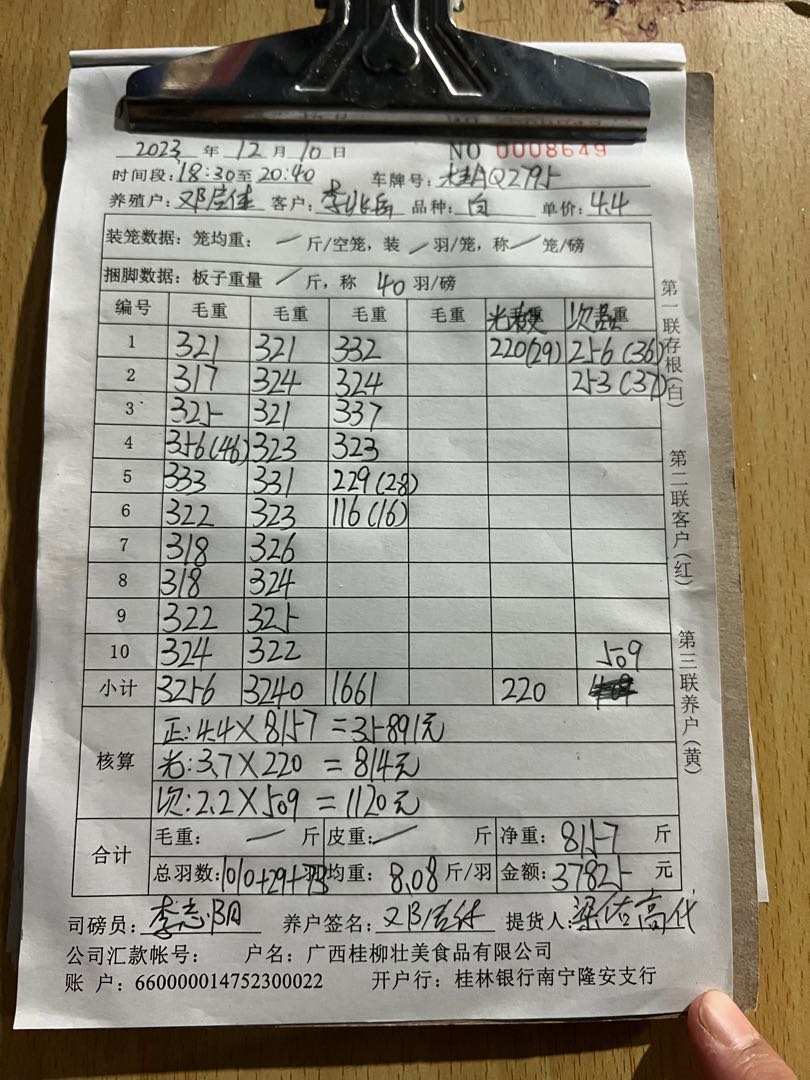 2023 年 12 月 10 日 NO 0008649
时间段: 18:30至 20:40 车牌号: 桂AQ2795
养殖户: 邓启佳 客户: 李兆岳 品种: 白 单价: 4.4
装笼数据: 笼均重: / 斤/空笼, 装 / 羽/笼, 称 / 笼/磅
捆脚数据: 板子重量 / 斤, 称 40 羽/磅
编号 毛重 毛重 毛重 毛重 次品
1 321 321 332 220(29) 256(36)
2 317 324 324 253(37)
3 325 321 337
4 356(46) 323 323
5 333 331 229(28)
6 322 323 116(16)
7 318 326
8 318 324
9 322 325
10 324 322 509
小计 3256 3240 1661 220
核算
正: 4.4×8157=35891元
光: 3.7×220=814元
次: 2.2×509=1120元
合计
毛重: — 斤 皮重: / 斤 净重: 8157 斤
总羽数: 1010+29+73 羽 均重: 8.08 斤/羽 金额: 37825 元
司磅员: 李志阳 养户签名: 提货人:
公司汇款帐号: 户名: 广西桂柳壮美食品有限公司
账 户: 660000014752300022 开户行: 桂林银行南宁隆安支行
第一联存根(白)
第二联客户(红)
第三联养户(黄)